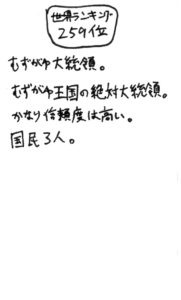 世界ランキング
259位
むずがゆ大総領。
むずがゆ王国の絶対大総領。
かなり信頼度は高い。
国民3人。